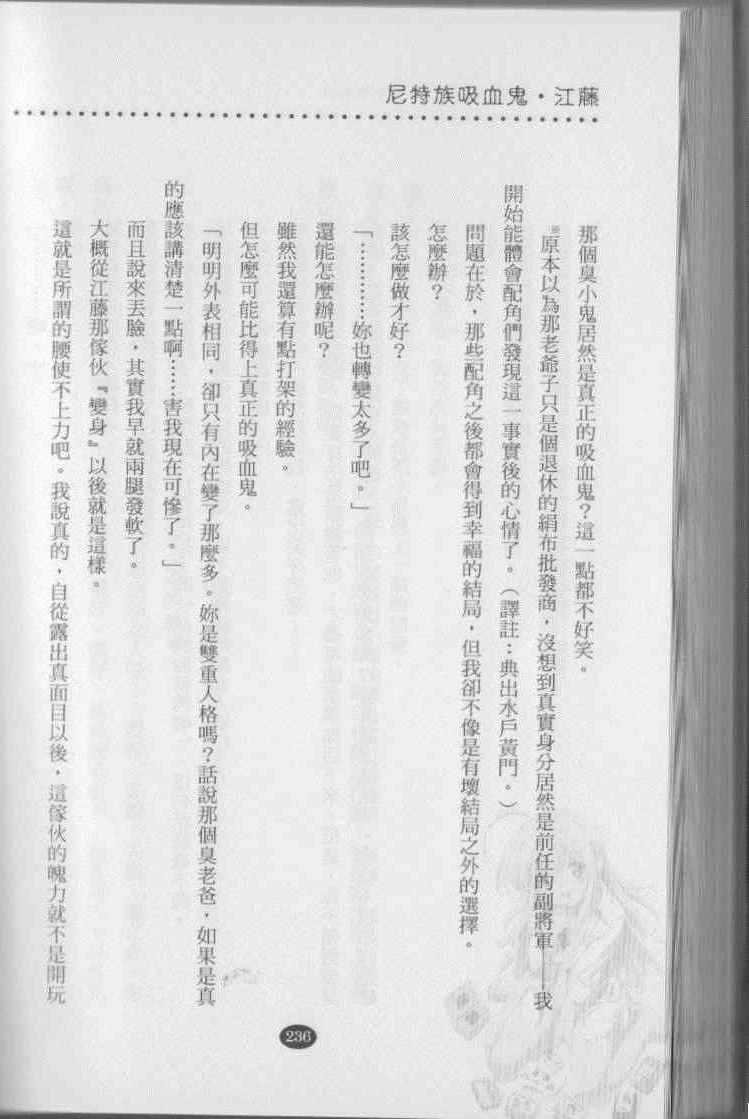 尼特族吸血鬼・江藤
那個臭小鬼居然是真正的吸血鬼？這一點都不好笑。
※原本以為那老爺子只是個退休的絹布批發商，沒想到真實身分居然是前任的副將軍——我
開始能體會配角們發現這一事實後的心情了。（譯註：典出水戶黃門。）
問題在於，那些配角之後都會得到幸福的結局，但我卻不像是有壞結局之外的選擇。
怎麼辦？
該怎麼做才好？
「…………妳也轉變太多了吧。」
還能怎麼辦呢？
雖然我還算有點打架的經驗。
但怎麼可能比得上真正的吸血鬼。
「明明外表相同，卻只有內在變了那麼多。妳是雙重人格嗎？話說那個臭老爸，如果是真
的應該講清楚一點啊……害我現在可慘了。」
而且說來丟臉，其實我早就兩腿發軟了。
大概從江藤那傢伙『變身』以後就是這樣。
這就是所謂的腰使不上力吧。我說真的，自從露出真面目以後，這傢伙的魄力就不是開玩
236